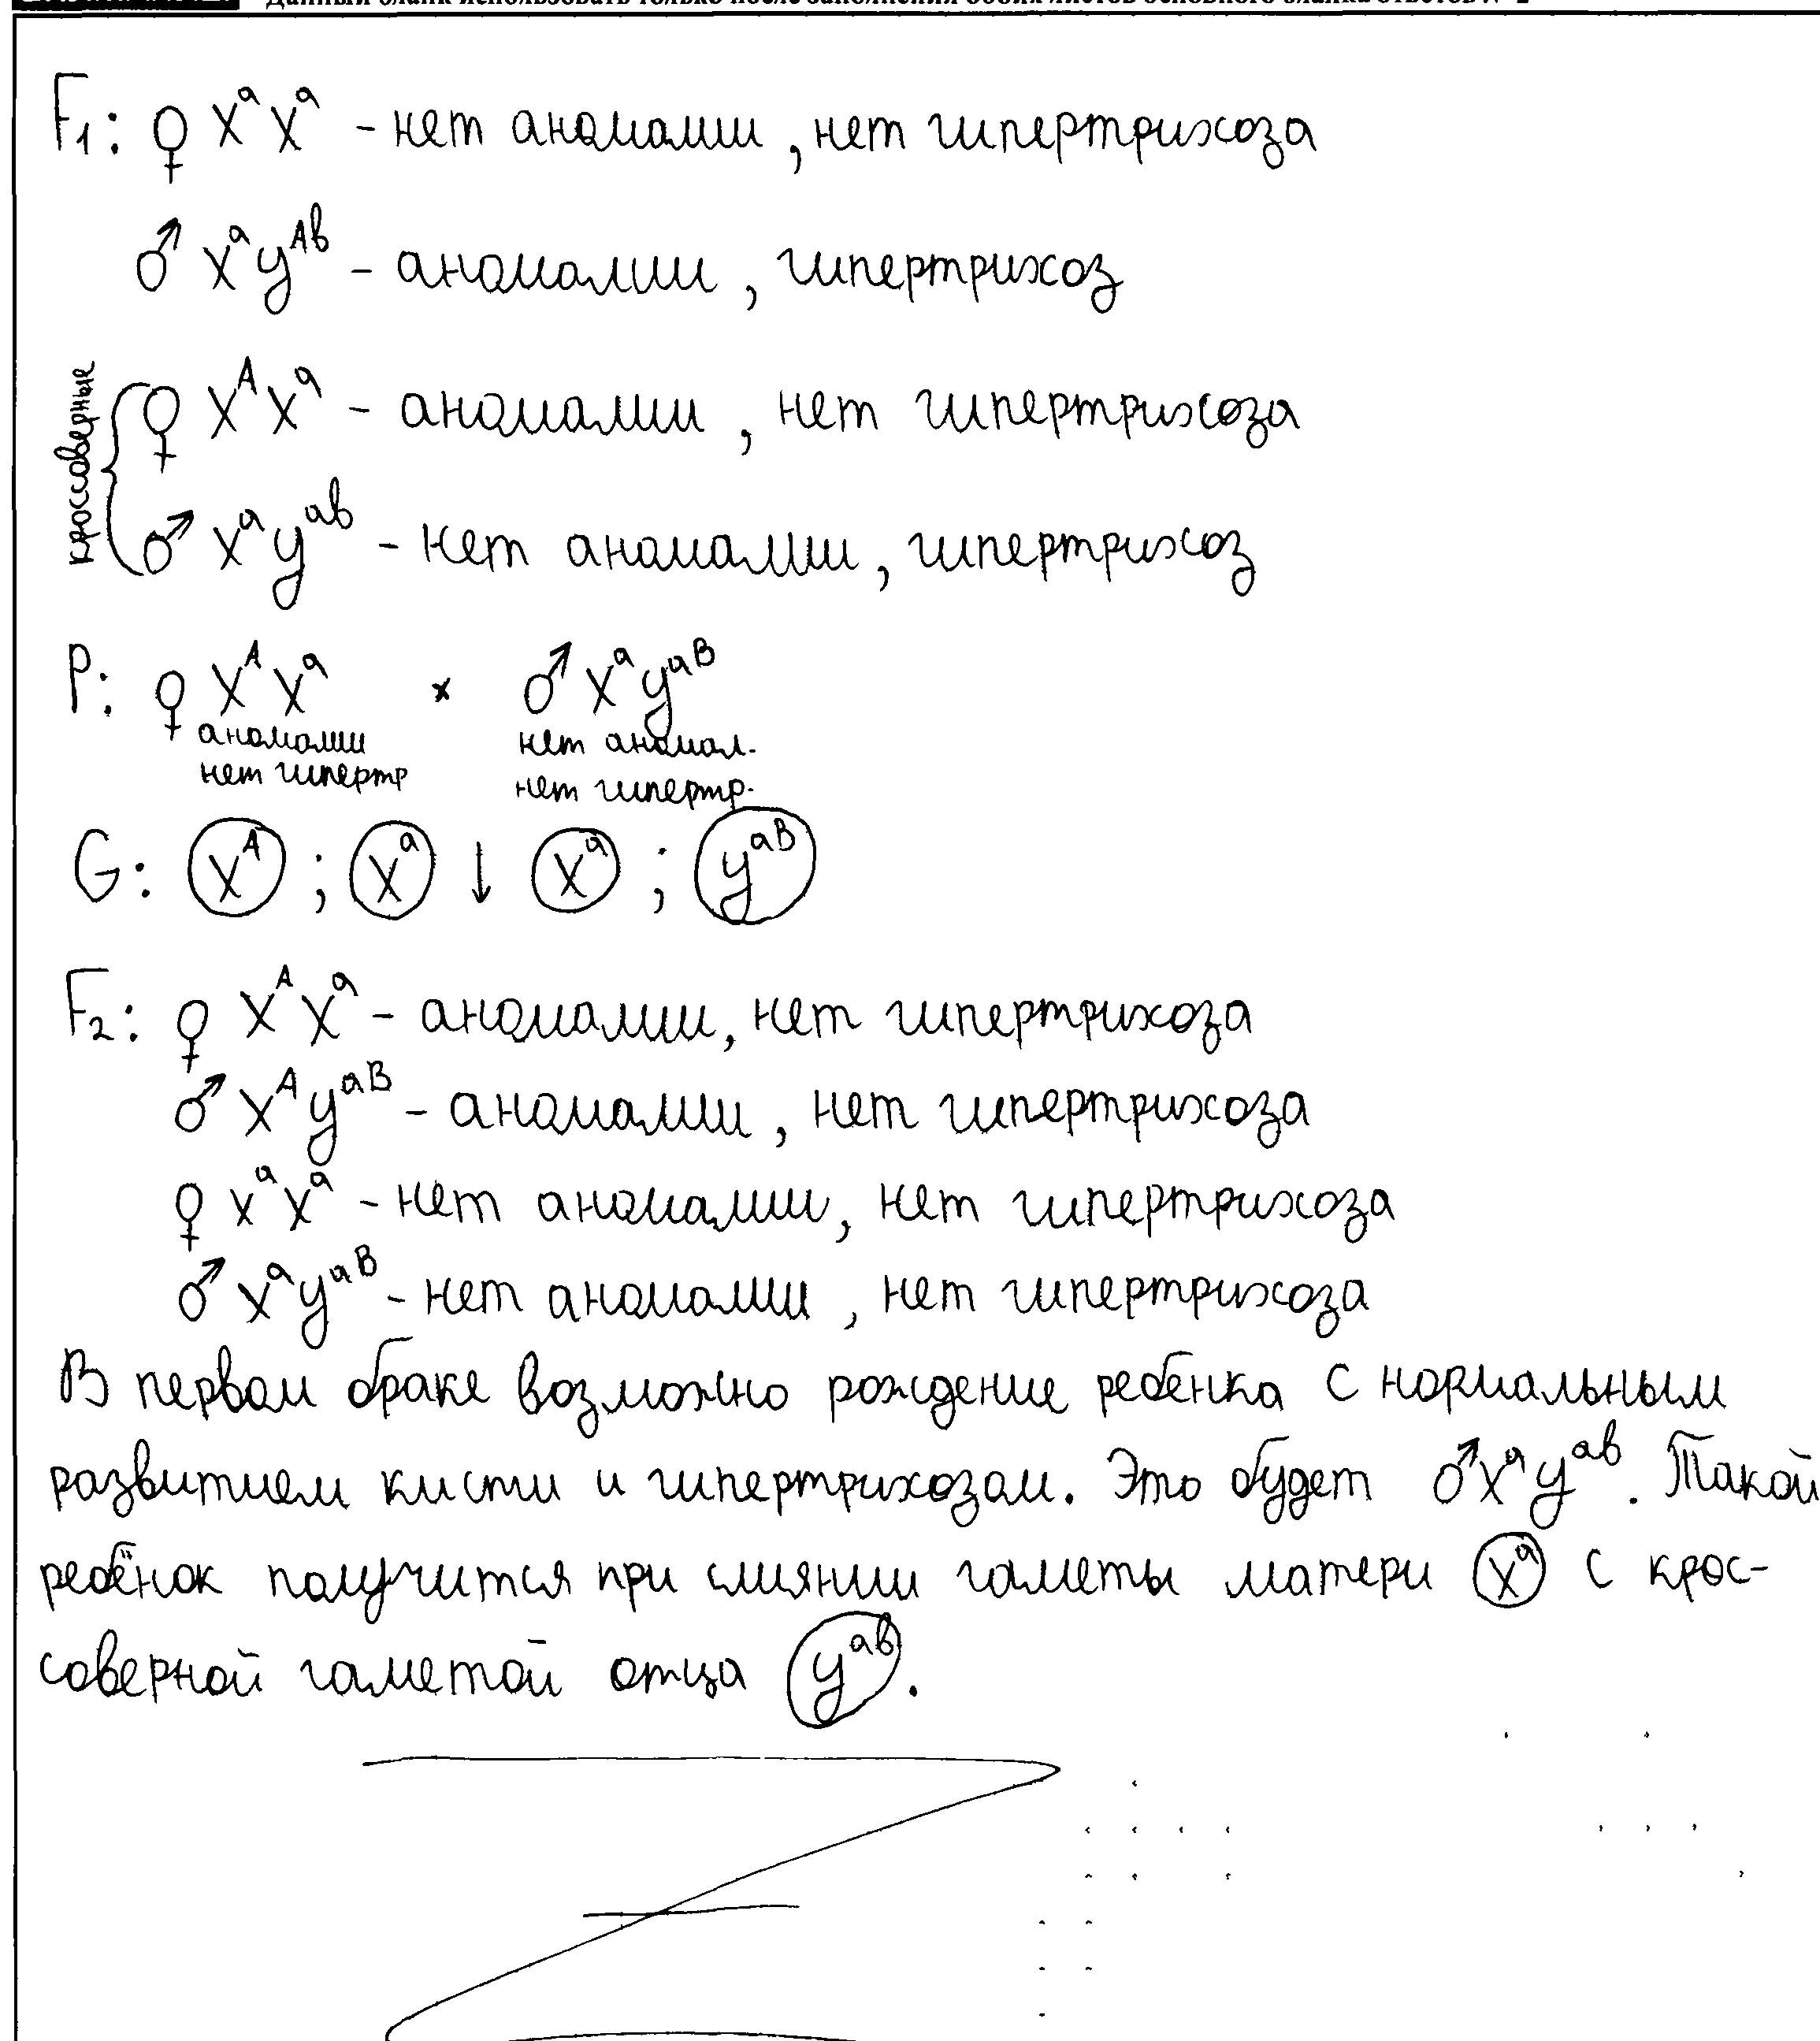 Данный бланк использовать только после заполнения обоих листов основного бланка ответов № 2
F₁: ♀ XᵃXᵃ - нет аномалии, нет гипертрихоза
♂ XᵃYᴬᵇ - аномалии, гипертрихоз
кроссоверные
♀ XᴬXᵃ - аномалии, нет гипертрихоза
♂ XᵃYᵃᵇ - нет аномалии, гипертрихоз
P: ♀ XᴬXᵃ × ♂ XᵃYᵃᴮ
аномалии нет аномал.
нет гипертр нет гипертр.
G: Xᴬ ; Xᵃ ↓ Xᵃ ; Yᵃᴮ
F₂: ♀ XᴬXᵃ - аномалии, нет гипертрихоза
♂ XᴬYᵃᴮ - аномалии, нет гипертрихоза
♀ XᵃXᵃ - нет аномалии, нет гипертрихоза
♂ XᵃYᵃᴮ - нет аномалии, нет гипертрихоза
В первом браке возможно рождение ребёнка с нормальным
развитием кисти и гипертрихозом. Это будет ♂XᵃYᵃᵇ. Такой
ребёнок получится при слиянии гаметы матери Xᵃ с крос-
соверной гаметой отца Yᵃᵇ.